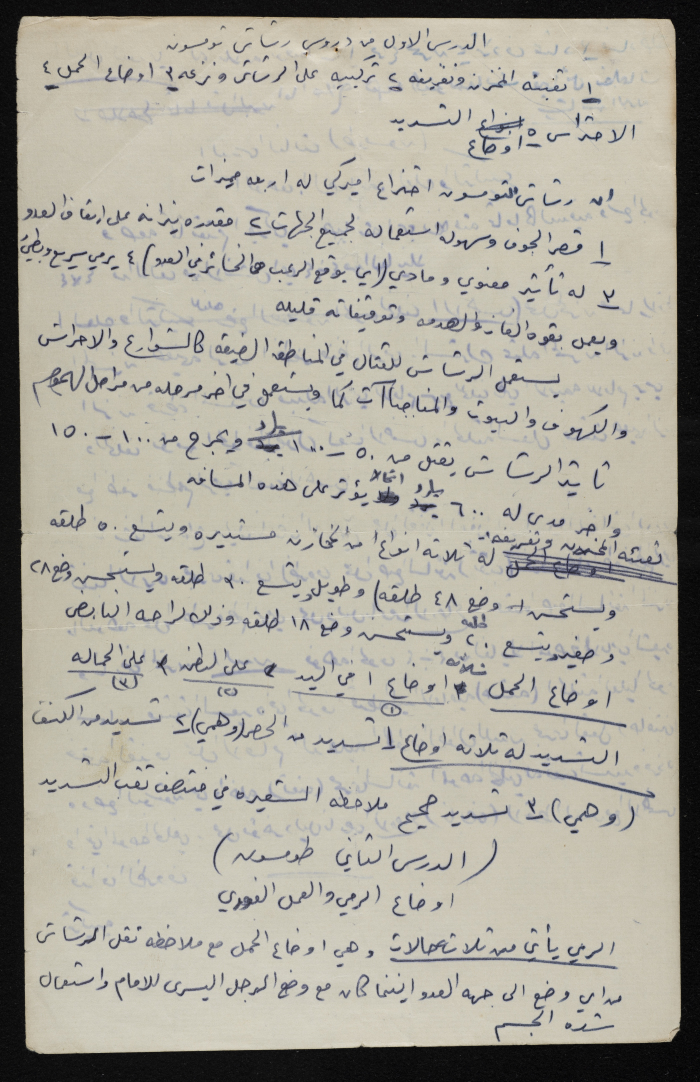 الدرس الاول من دروس رشاش تومسون
١ تعبئه المخزن وتفريغه ٢ تركيبه على الرشاش ونزعه ٣ اوضاع الحمل ٤
الاحتراس ٥ اوضاع التسديد
ان رشاش التومسون اختراع اميركي له اربعه ميزات
١ قصر الجوف وسهوله استعماله لجميع الجهات ٢ مقدرة نيرانه على ايقاف العدو
٣ له تأثير معنوي ومادي (اي يوقع الرعب والخسائر في العدو) ٤ يرمي سريع وبطيئ
ويعمل بقوه الغاز والصدمه وتوقيفاته قليله
يستعمل الرشاش للقتال في المناطق الضيقه كالشوارع والاحراش
والكهوف والبيوت والمفاجئات كما ويستعمل في اخر مرحله من مراحل الهجوم
تأثير الرشاش يقتل من ٥٠ - ١٠٠ يارد ويجرح من ١٠٠ - ١٥٠
واخر مدى له ٦٠٠ يارد يؤثر على هذه المسافه
تعبئه المخزن وتفريغه : له ثلاثه انواع من المخازن مستديره ويتسع ٥٠ طلقه
ويستحسن وضع ٤٨ طلقه) وطويل ويتسع ٣٠ طلقه ويستحسن وضع ٢٨
وصغير ويتسع ٢٠ طلقه ويستحسن وضع ١٨ طلقه وذلك لراحه النابض
اوضاع الحمل ثلاثه اوضاع ١ في اليد ٢ على البطن ٣ على الحماله
(١) (٢) (٣)
التسديد له ثلاثه اوضاع ١ تسديد من الخصر (وهمي) ٢ تسديد من الكتف
(وهمي) ٣ تسديد صحيح ملاحظه الشعيره في منتصف ثقب التسديد
(الدرس الثاني طومسون)
اوضاع الرمي والعمل الفوري
الرمي يأتي من ثلاث حالات وهي اوضاع الحمل مع ملاحظه نقل الرشاش
من اي وضع الى جهه العدو اينما كان مع وضع الرجل اليسرى للامام واستعمال
شده الجسم